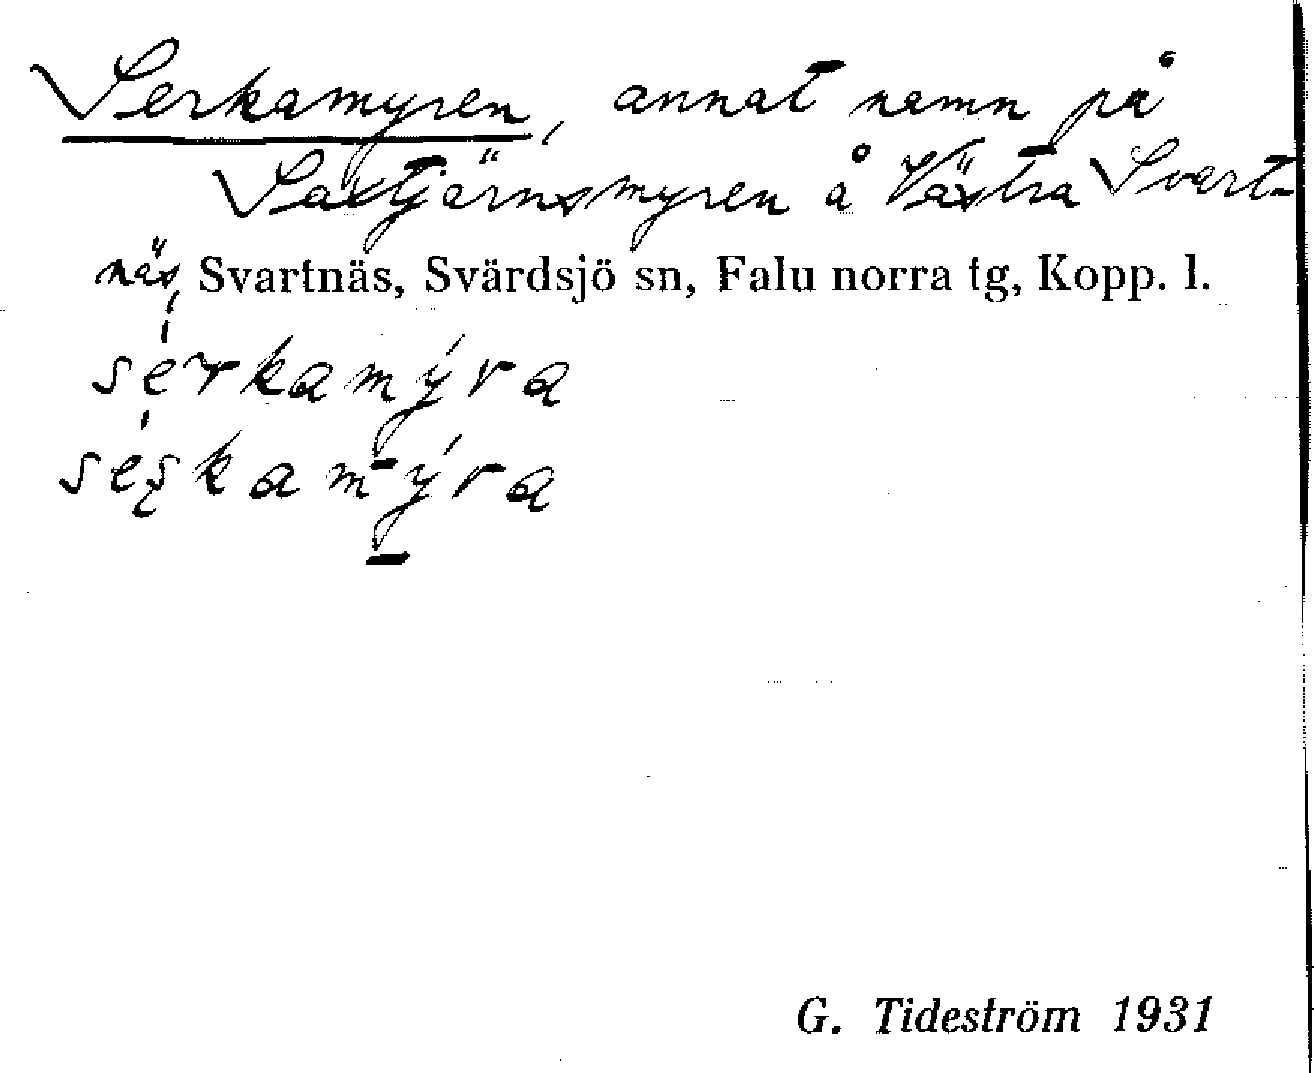 Serkamyren, annat namn på
Saxtjärnsmyren å Västra Svart-
näs, Svartnäs, Svärdsjö sn, Falu norra tg, Kopp. l.
sérkamýra
séşkamýra
G. Tideström 1931